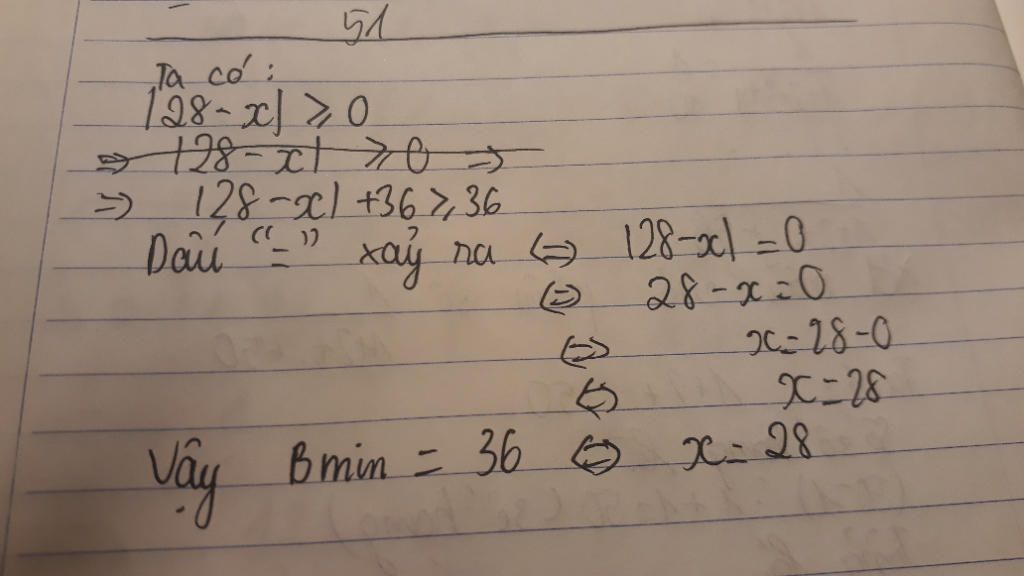 51
Ta có:
|28-x| ≥ 0
⇒ |28-x| ≥ 0 ⇒
⇒ |28-x| +36 ≥ 36
Dấu "=" xảy ra ⇔ |28-x| = 0
⇔ 28-x=0
⇔ x=28-0
⇔ x=28
Vậy Bmin = 36 ⇔ x=28